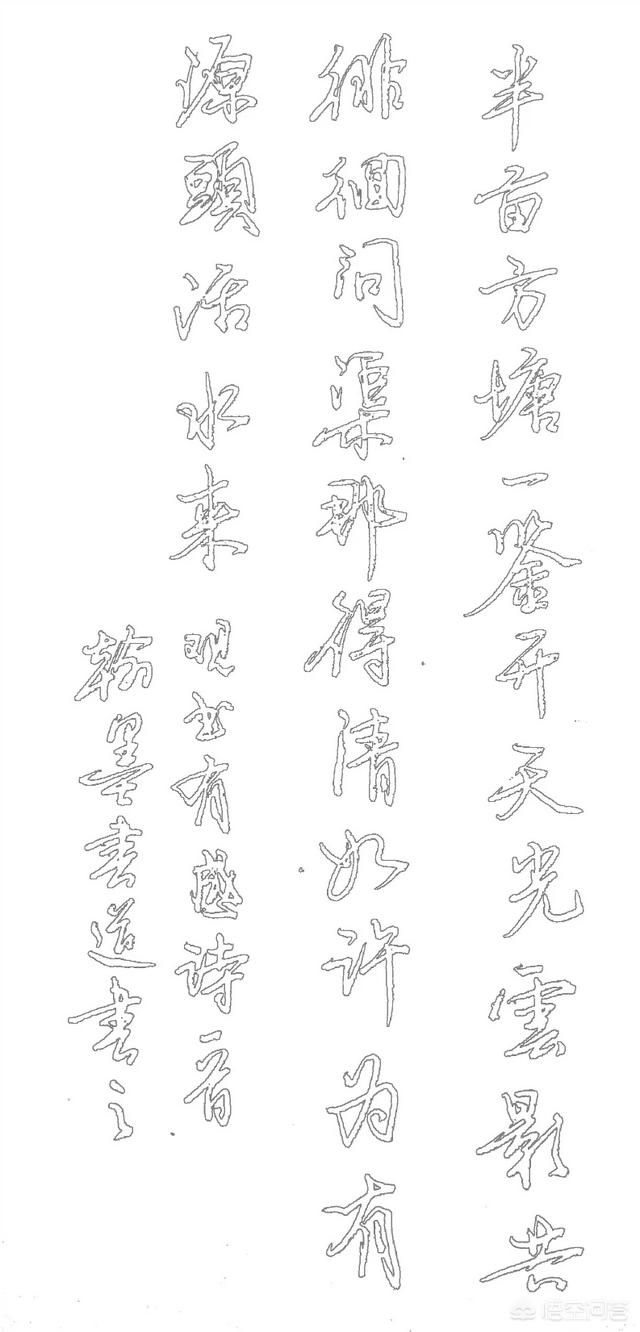 半亩方塘一鉴开天光雲影共
徘徊问渠那得清如许为有
源頭活水来
观书有感诗一首
翰墨书道书之
悟空问答